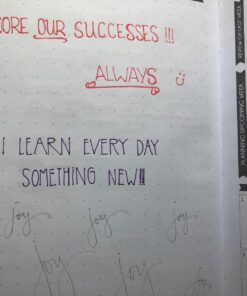 CORE OUR SUCCESSES !!!
ALWAYS
I LEARN EVERY DAY
SOMETHING NEW!!!
joy joy joy
joy joy joy
PLANNING UPCOMING WEEK